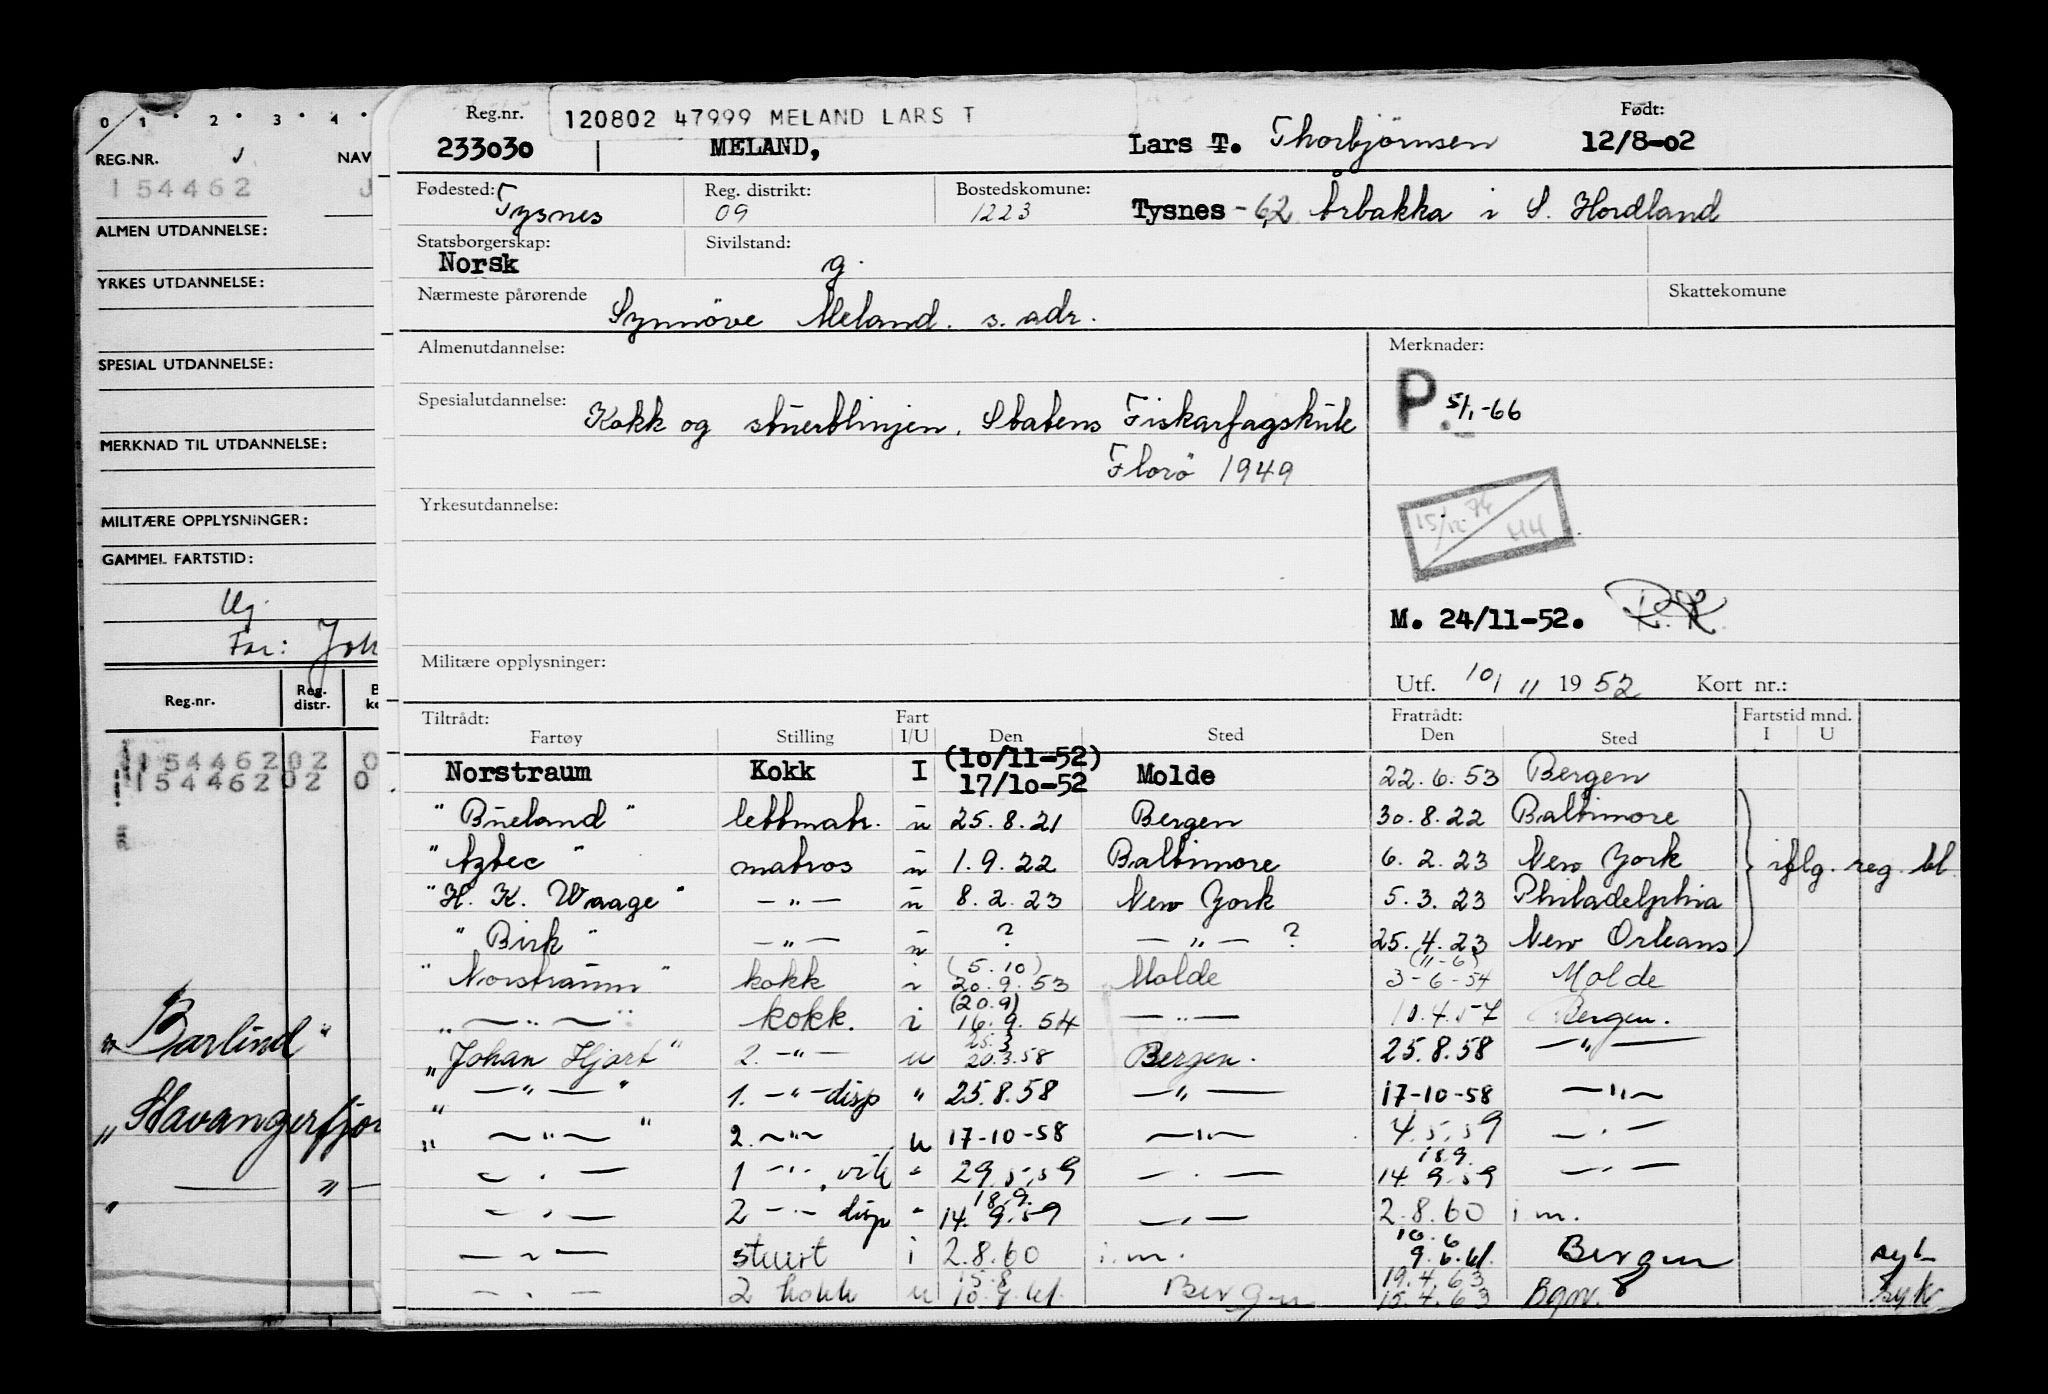 0 1 2 3 4
REG.NR. NAV
154462 J
ALMEN UTDANNELSE:
YRKES UTDANNELSE:
SPESIAL UTDANNELSE:
MERKNAD TIL UTDANNELSE:
MILITÆRE OPPLYSNINGER:
GAMMEL FARTSTID:
Ug.
Far: Joh
Reg.nr. Reg. distr.
15446202 0
15446202 0
"Barlind"
"Stavangerfjor
— " —
120802 47999 MELAND LARS T
Reg.nr. Født:
233030 MELAND, Lars T. Thorbjørnsen 12/8-02
Fødested: Tysnes Reg. distrikt: 09 Bostedskomune: 1223 Tysnes - 62 Årbakka i S. Hordland
Statsborgerskap: Norsk Sivilstand: g.
Nærmeste pårørende Synnöve Meland. s. adr. Skattekomune
Almenutdannelse: Merknader:
Spesialutdannelse: Kokk og stuertlinjen, Statens Fiskarfagskule P. 5/1-66
Florö 1949
Yrkesutdannelse:
15/12 74 HH
M. 24/11-52. R.K.
Militære opplysninger:
Utf. 10/11 1952 Kort nr.:
Tiltrådt: Fart Fratrådt: Fartstid mnd.
Fartøy Stilling I/U Den Sted Den Sted I U
Norstraum Kokk I (10/11-52) 17/10-52 Molde 22.6.53 Bergen
"Bueland" lettmatr. u 25.8.21 Bergen 30.8.22 Baltimore
"Aztec" matros u 1.9.22 Baltimore 6.2.23 New York iflg. reg. bl.
"H. K. Waage" —"— u 8.2.23 New York 5.3.23 Philadelphia
"Birk" —"— u ? —"— ? 25.4.23 New Orleans
"Norstraum" kokk i (5.10) 20.9.53 Molde (11-6) 3-6-54 Molde
"—"—" kokk. i (20.9) 16.9.54 —"— 10.4.57 Bergen.
"Johan Hjort" 2. —"— u 25.3 20.3.58 Bergen. 25.8.58 —"—
"—"—" 1. —"— disp " 25.8.58 —"— 17-10-58 —"—
"—"—" 2. —"— u 17-10-58 —"— 4.5.59 —"—
—"— 1 —"— vik " 29.5.59 —"— 18.9. 14.9.59 —"—
—"— 2 —"— disp " 18.9. 14.9.59 —"— 2.8.60 i.m.
—"— stuert i 2.8.60 i.m. 10.6 9.6.61. Bergen syk
—"— 2 kokk u 15.8 10.9.61. Bergen 19.4.63 15.4.63 Bgn. syk